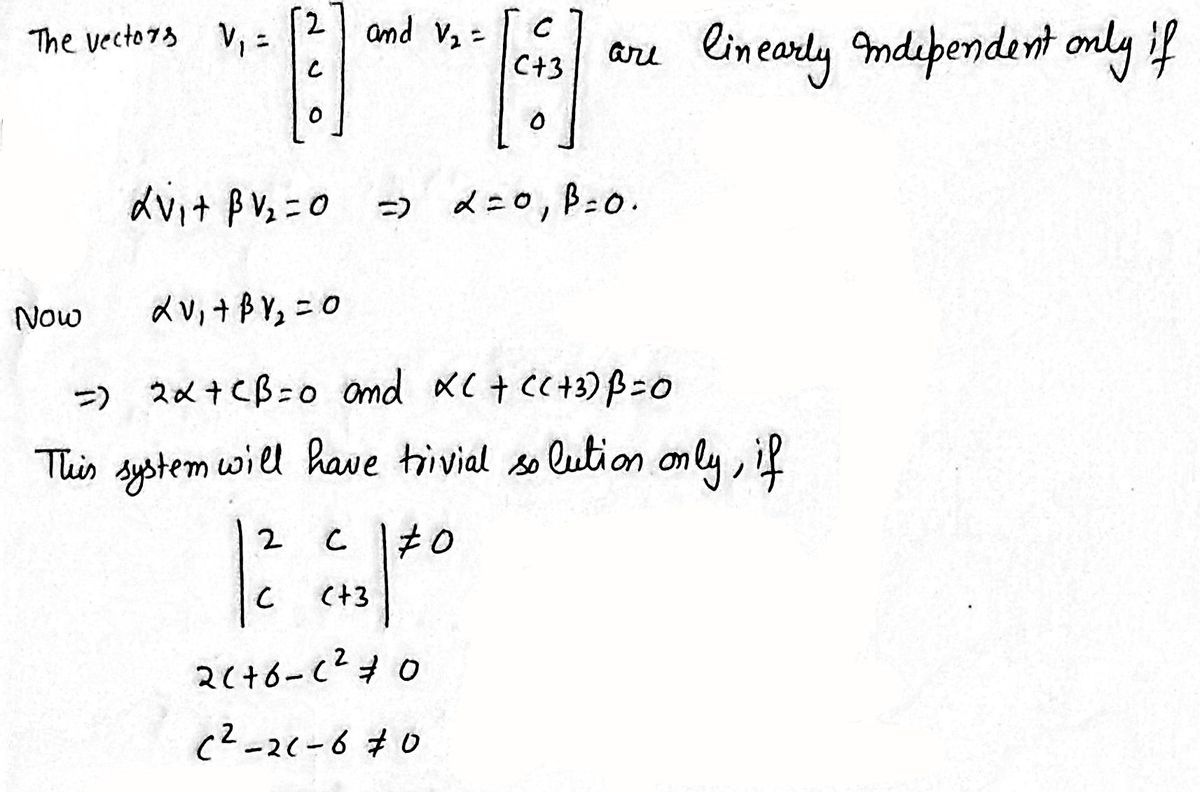 The vectors V₁ = [2 c 0] and V₂ = [c c+3 0] are linearly independent only if
αV₁ + βV₂ = 0 ⇒ α = 0, β = 0.
Now αV₁ + βV₂ = 0
⇒ 2α + cβ = 0 and αc + (c+3)β = 0
This system will have trivial solution only, if
|2 c| ≠ 0
|c c+3|
2c + 6 - c² ≠ 0
c² - 2c - 6 ≠ 0